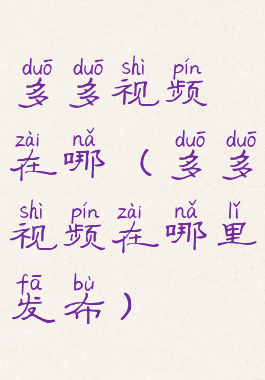 duō duō shì pín
多多视频
zài nǎ duō duō
在哪（多多
shì pín zài nǎ lǐ
视频在哪里
fā bù
发布）